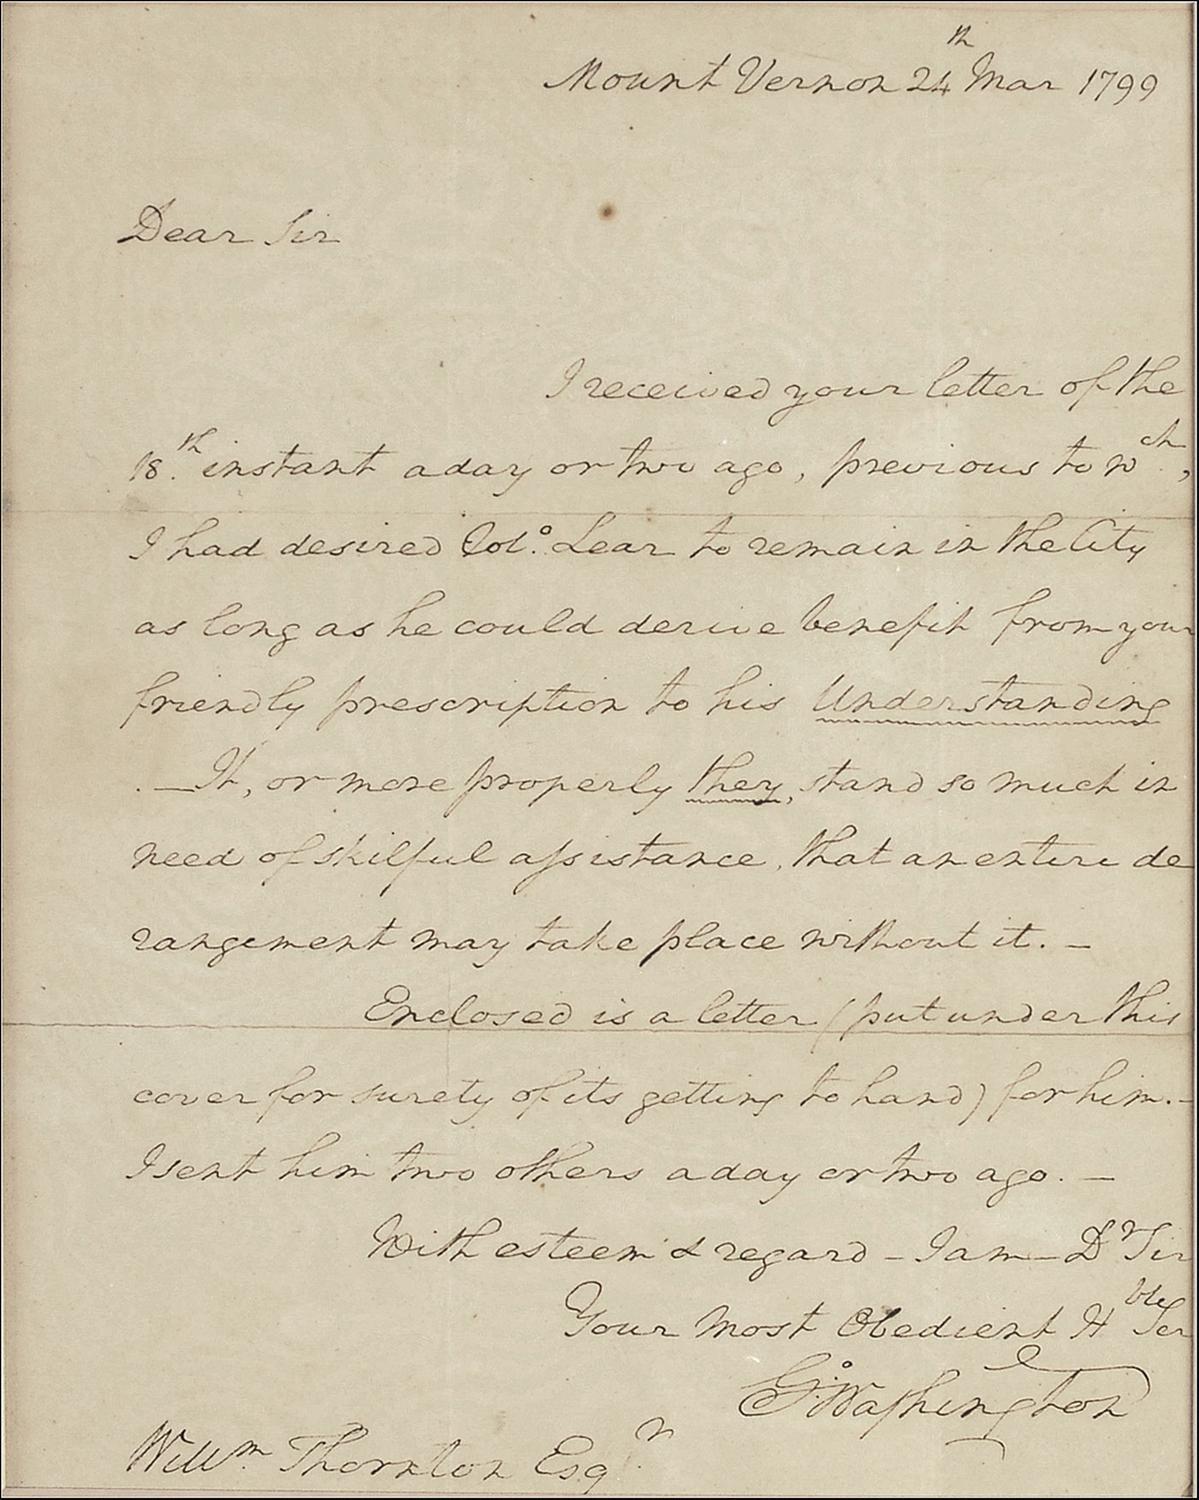 Mount Vernon 24th Mar 1799
Dear Sir
I received your letter of the
18.th instant a day or two ago, previous to wch,
I had desired Colo. Lear to remain in the City
as long as he could derive benefit from your
friendly prescription to his Understanding
. — It, or more properly they, stand so much in
need of skilful assistance, that an entire de
rangement may take place without it. —
Enclosed is a letter (put under this
cover for surety of its getting to hand) for him. —
I sent him two others a day or two ago. —
With esteem & regard — I am — Dr Sir
Your Most Obedient Hble Ser
Go: Washington
Willm. Thornton Esqr